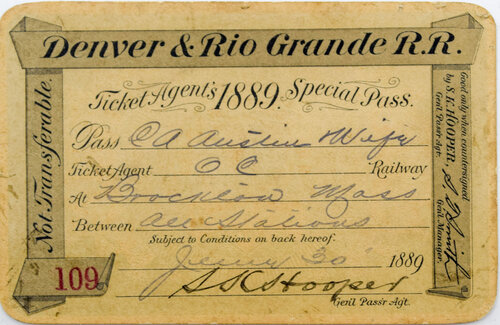 Denver & Rio Grande R.R.
Ticket Agent's 1889 Special Pass.
Pass C A Austin & Wife
Ticket Agent O C Railway
At Brockton Mass
Between All Stations
Subject to Conditions on back hereof.
30 1889
S K Hooper
Gen'l Pass'r Agt.
Not Transferable.
109
Good only when countersigned
by S. K. HOOPER,
Gen'l Pass'r Agt.
Smith
Gen'l Manager.